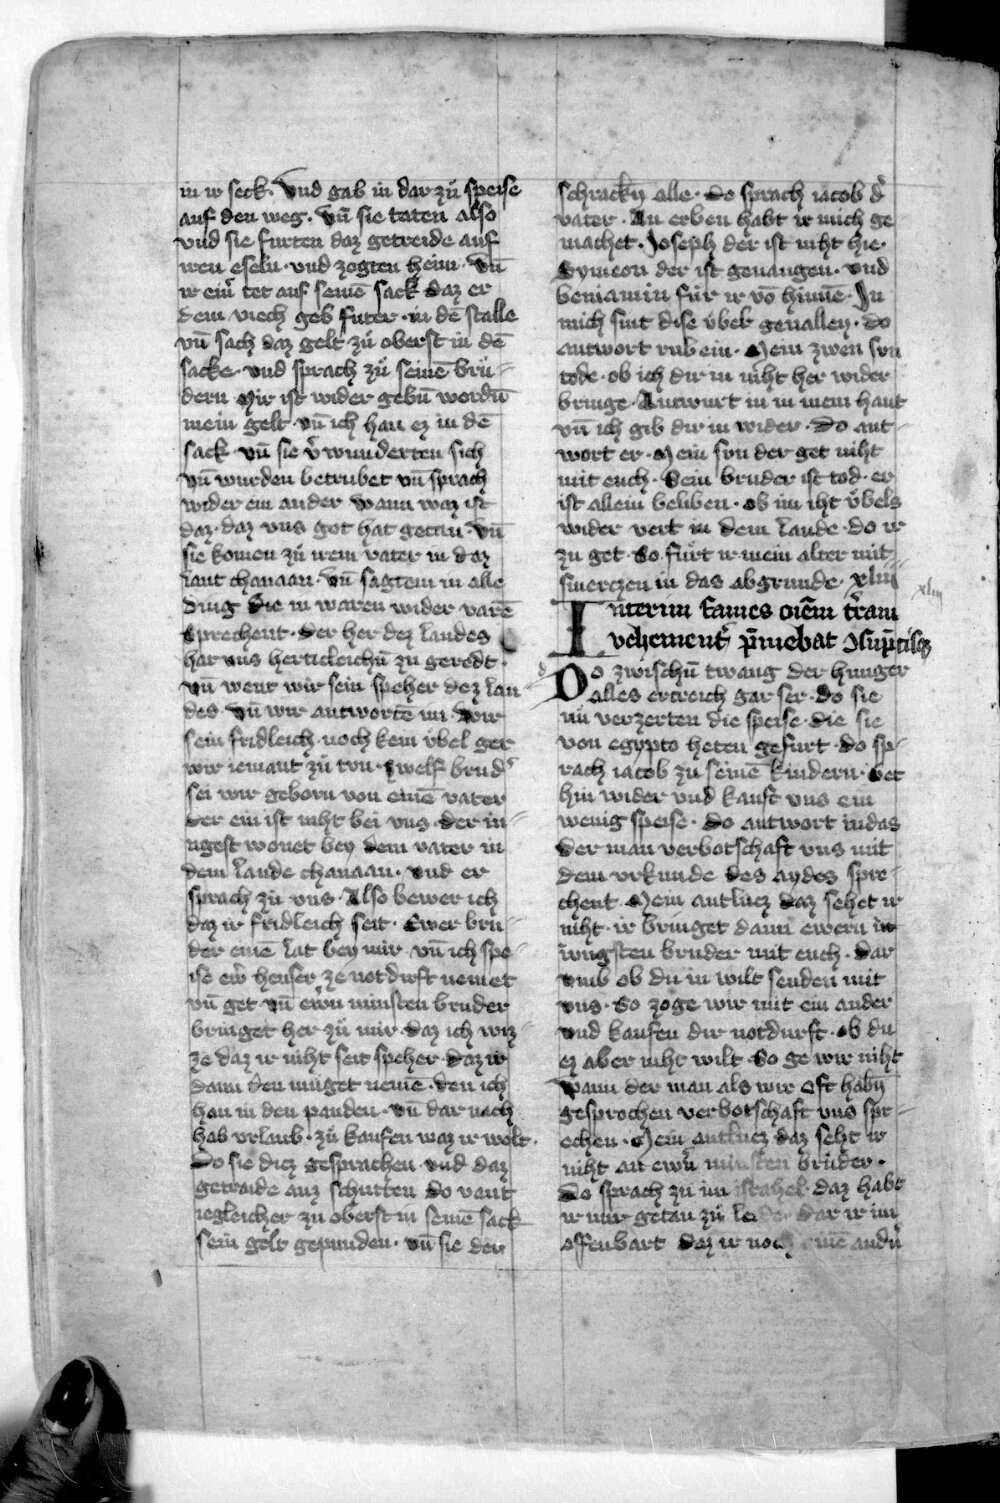 in ir seck. Vnd gab in dar zů speise
auf den weg. Vn̄ sie taten also
vnd sie furten daz getreide auf
iren eseln. vnd zogten heim. Vn̄
ir ein͛ tet auf seinē sack daz er
dem viech geb futer. in dē stalle
vn̄ sach daz gelt zů oberst in dē
sacke. vnd sprach zů seinē brů-
dern Mir ist wider gebn̄ wordn̄
mein gelt vn̄ ich han ez in dē
sack vn̄ sie v͛wunderten sich
vn̄ wurden betrubet vn̄ sprach
wider ein ander Wann waz ist
daz. daz vns got hat getan. Vn̄
sie komen zů irem vater in daz
lant chanaan. Vn̄ sagtem in alle
ding die in waren wider varē
Sprechent. der her dez landes
hat vns herticleichn̄ zu geredt.
vn̄ went wir sein speher dez lan
des. Vn̄ wir antwortē im. Wir
sein fridleich noch kein v̇bel ger
wir iemant zů tun. zwelf brud͛
sei wir geborn von einē vater
der ein ist niht bei vns. der in-
ngest wonet bey dem vater in
dem lande chanaan. Vnd er
sprach zů vns. Also bewer ich
daz ir fridleich seit. Ewer brů-
der einē lat bey mir. vn̄ ich spe-
ise ew͛ heuser ze notdurft nemet
vn̄ get vn̄ ew͛n minsten bruder
bringet her zů mir. daz ich wiz-
ze daz ir niht seit speher. daz ir
dann den muget nemē. den ich
han in den panden. vn̄ dar nach
hab vrlaub. zů kaufen waz ir wolt.
Do sie diez gesprachen vnd daz
getraide auz schutten do vant
iegleicher zu oberst in seinē sack
sein gelt gepunden. vn̄ sie der
schrackn̄ alle. do sprach iacob d͛
vater. An erben habt ir mich ge
machet. Joseph der ist niht hie.
Symeon der ist geuangen. vnd
beniamin fůr ir vō hinnē. In
mich sint dise v̇bel geuallen. do
antwort ruben. Mein zwen sun
tode. ob ich dir in niht her wider
bringe. Antwurt in in mein hant
vn̄ ich gib dir in wider. Do ant-
wort er. Mein sun der get niht
mit euch. Sein bruder ist tod. er
ist allein beliben. ob im iht v̇bels
wider vert in dem lande. do ir
zu get. So fůrt ir mein alter mit
smerczen in das abgrunde. xliii
xliij
Interim fames oīem t͛ram
vehement͛ p̄mebat
Do zwischn̄ twang der hunger
alles ertreich gar ser. do sie
nů verzerten die speise. die sie
von egypto heten gefůrt. do sp-
rach iacob zů seinē kindern. Get
hin wider vnd kauft vns ein
wenig speise. do antwort iudas
der man verbotschaft vns mit
dem vrkunde des aydes spre-
chent. Mein antlucz daz sehet ir
niht. ir bringet dann ewern
iungsten bruder mit euch. dar
vmb ob du in wilt senden mit
vns. So zoge wir mit ein ander
vnd kaufen dir notdurft. ob du
ez aber niht wilt. So ge wir niht
wann der man als wir oft habn̄
gesprochen verbotschaft vns spr-
echen. Mein antlucz daz seht ir
niht an ew͛n minsten brůder.
do sprach zů im israhel. daz habt
ir mir getan zů leide. dar ir im
offenbart daz ir noch einē andn̄